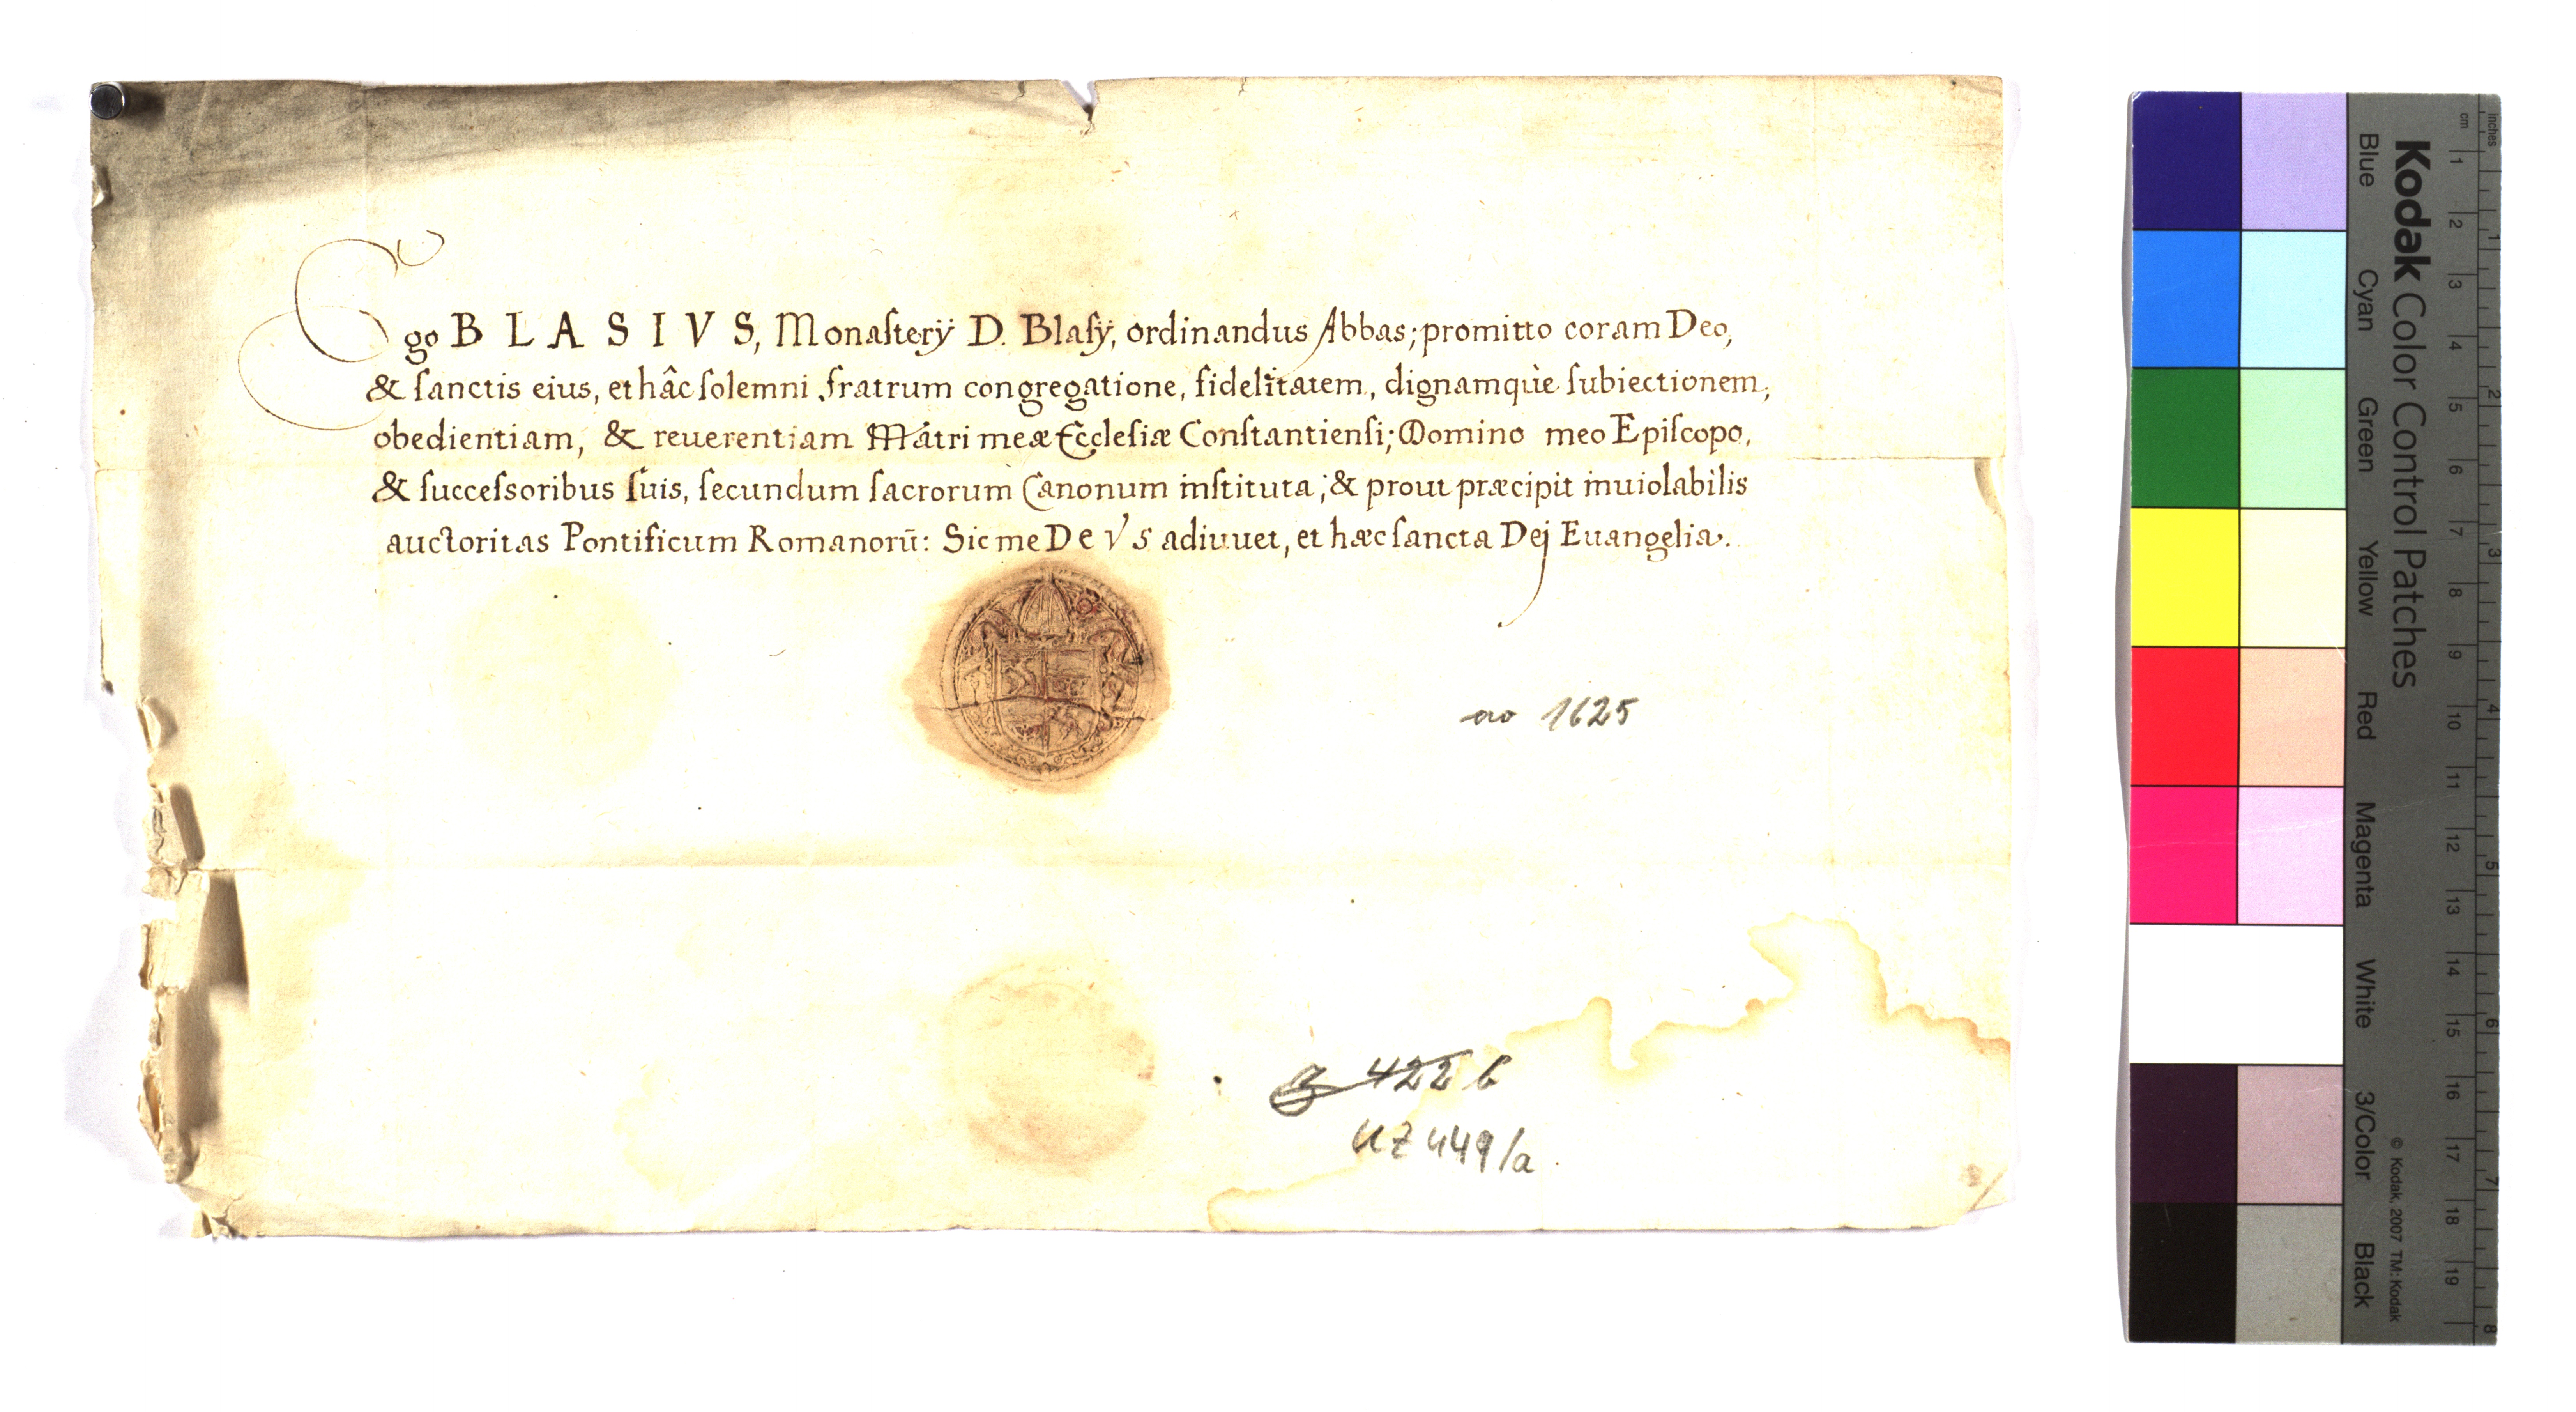 Ego BLASIVS, Monaſterÿ D. Blaſÿ, ordinandus Abbas; promitto coram Deo,
& ſanctis eius, et hâc ſolemni fratrum congregatione, fidelitatem, dignamquè ſubiectionem,
obedientiam, & reuerentiam Matri meæ Eccleſiæ Conſtantienſi; Domino meo Epiſcopo,
& ſucceſsoribus ſuis, ſecundum ſacrorum Canonum inſtituta; & prout præcipit inuiolabilis
auctoritas Pontificum Romanorū: Sic me DeVS adiuuet, et hæc ſancta Dej Euangelia.
ao 1625
422 b
UZ 449/a.
Kodak Color Control Patches
Blue Cyan Green Yellow Red Magenta White 3/Color Black
© Kodak, 2007 TM: Kodak
inches
cm
1 2 3 4 5 6 7 8 9 10 11 12 13 14 15 16 17 18 19
1 2 3 4 5 6 7 8